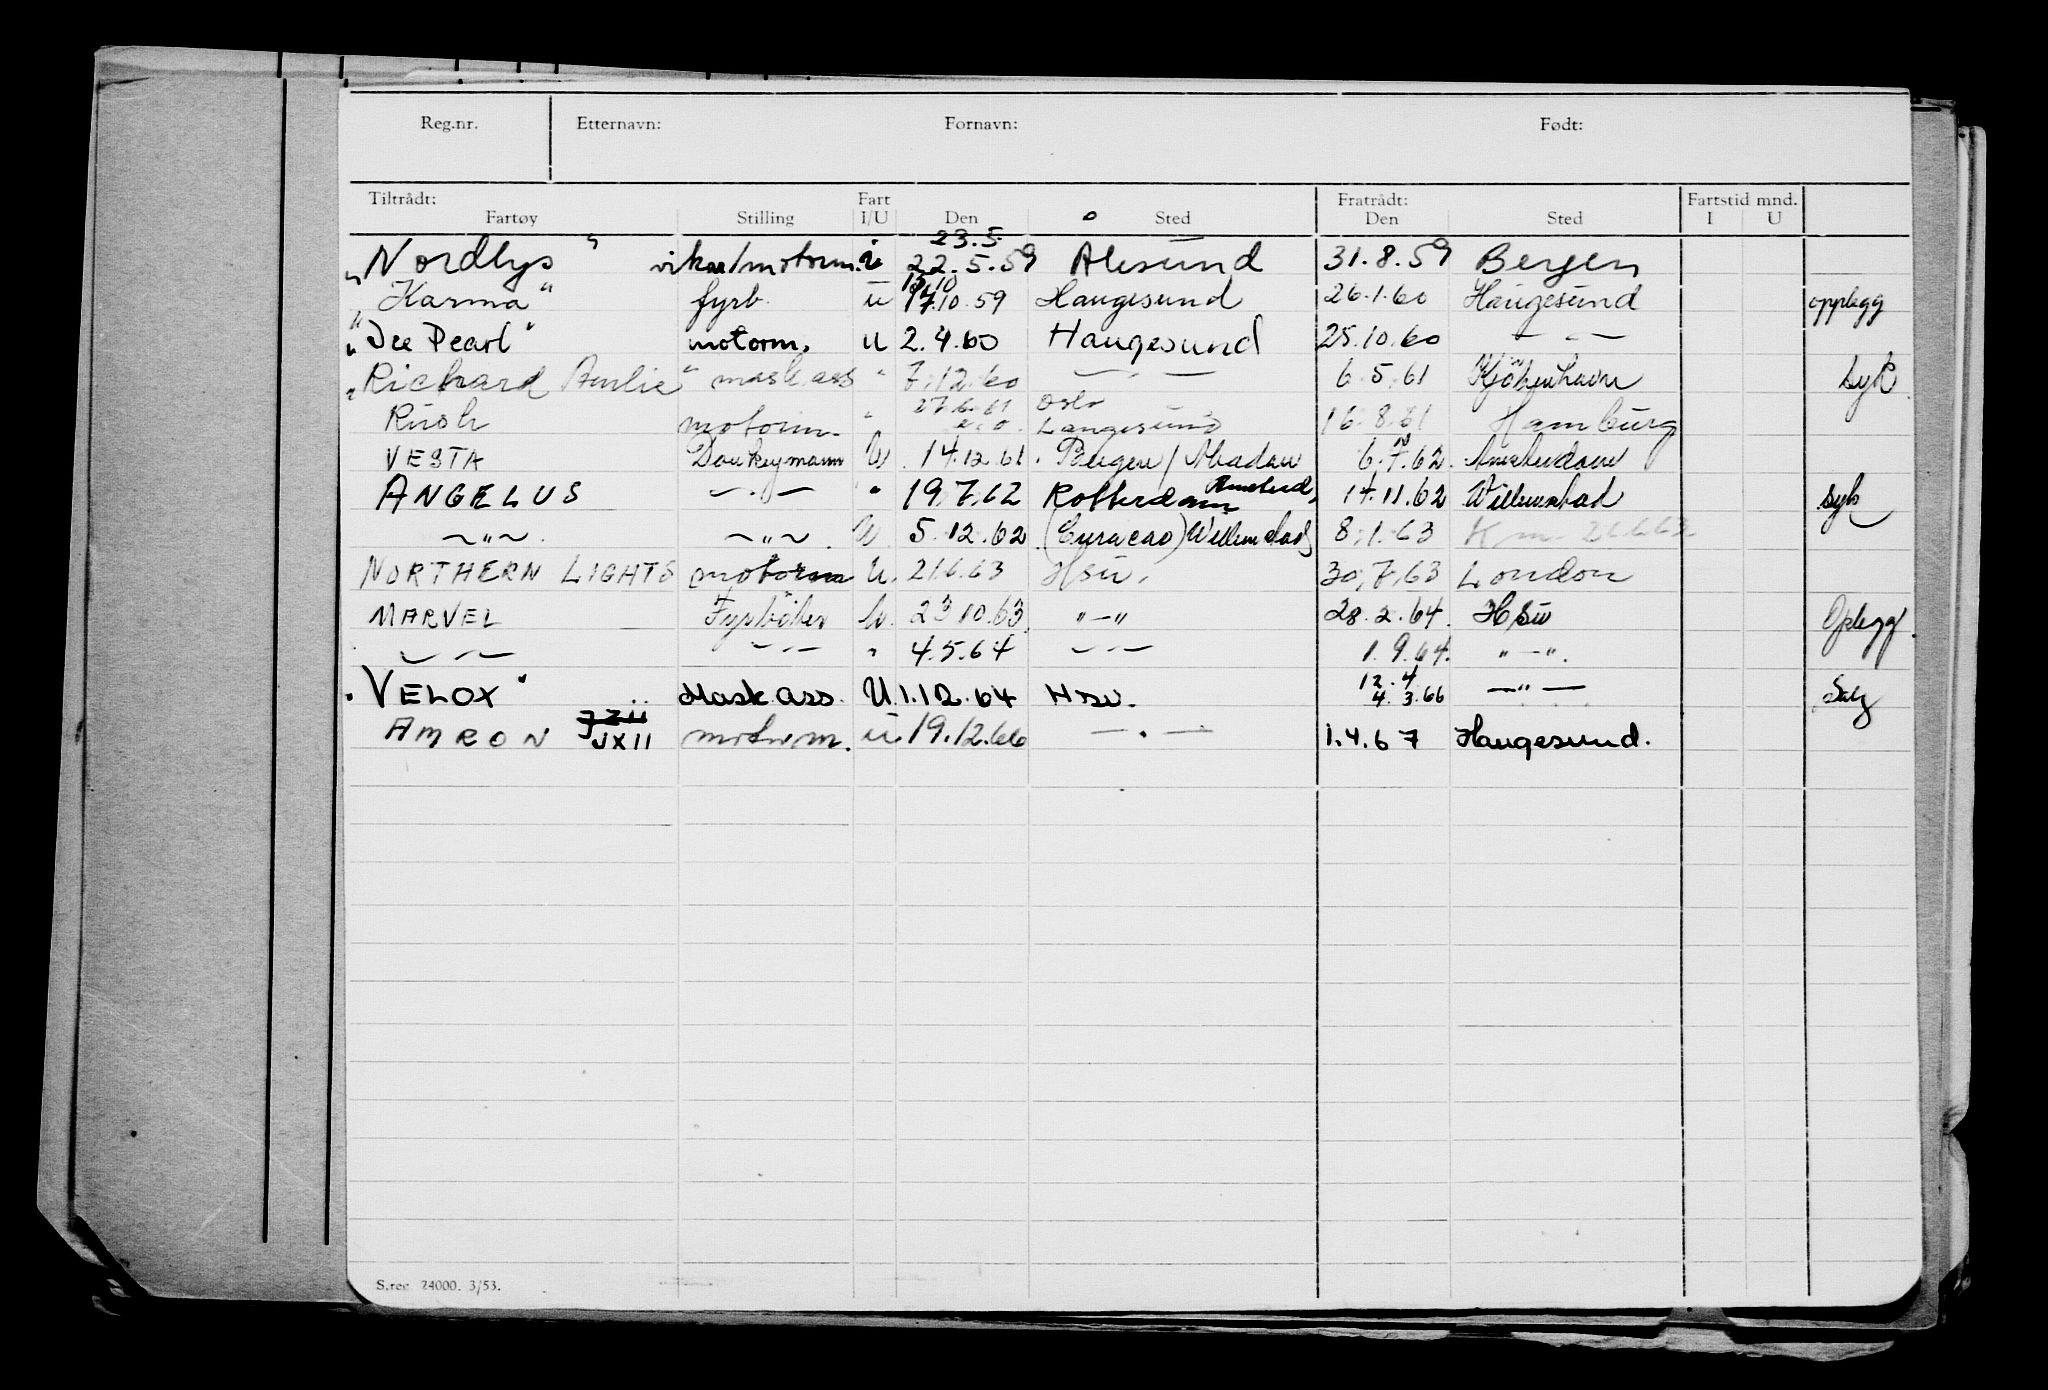 Reg.nr. Etternavn: Fornavn: Født:
Tiltrådt: Fart Fratrådt: Fartstid mnd.
Fartøy Stilling I/U Den Sted Den Sted I U
23.5.
"Nordlys" vikar/motorm. 22.5.59 Ålesund 31.8.59 Bergen
"Karma" fyrb. u 10.59 Haugesund 26.1.60 Haugesund opplegg
"Dee Pearl" motorm. u 2.4.60 Haugesund 25.10.60 — " —
"Richard Amlie" mask. ass " 7.12.60 — " — 6.5.61 Kjöbenhavn syk
27.6.61 Oslo
Rush motorm. " Langesund 16.8.61 Hamburg
VESTA Donkeymann U. 14.12.61. Bergen / Abadan 6.7.62. Amsterdam
ANGELUS — . — " 19.7.62 Rotterdam Amsterd. 14.11.62 Willemstad syk
— " — — " — U. 5.12.62 (Curacao) Willemstad 8.1.63
NORTHERN LIGHTS motorm U. 21.6.63 Hsu. 30.7.63 London
MARVEL Fyrböter U. 23.10.63. " — " 28.2.64. Hsu Oplegg.
— " — — " — " 4.5.64 — " — 1.9.64. " — ".
12.4
"VELOX" Mask ass. U 1.12.64 Hsu. 4.3.66 — " — Salg
AMRON JXII motorm. u 19.12.66 — " — 1.4.67 Haugesund.
S.reg. 24000. 3/53.